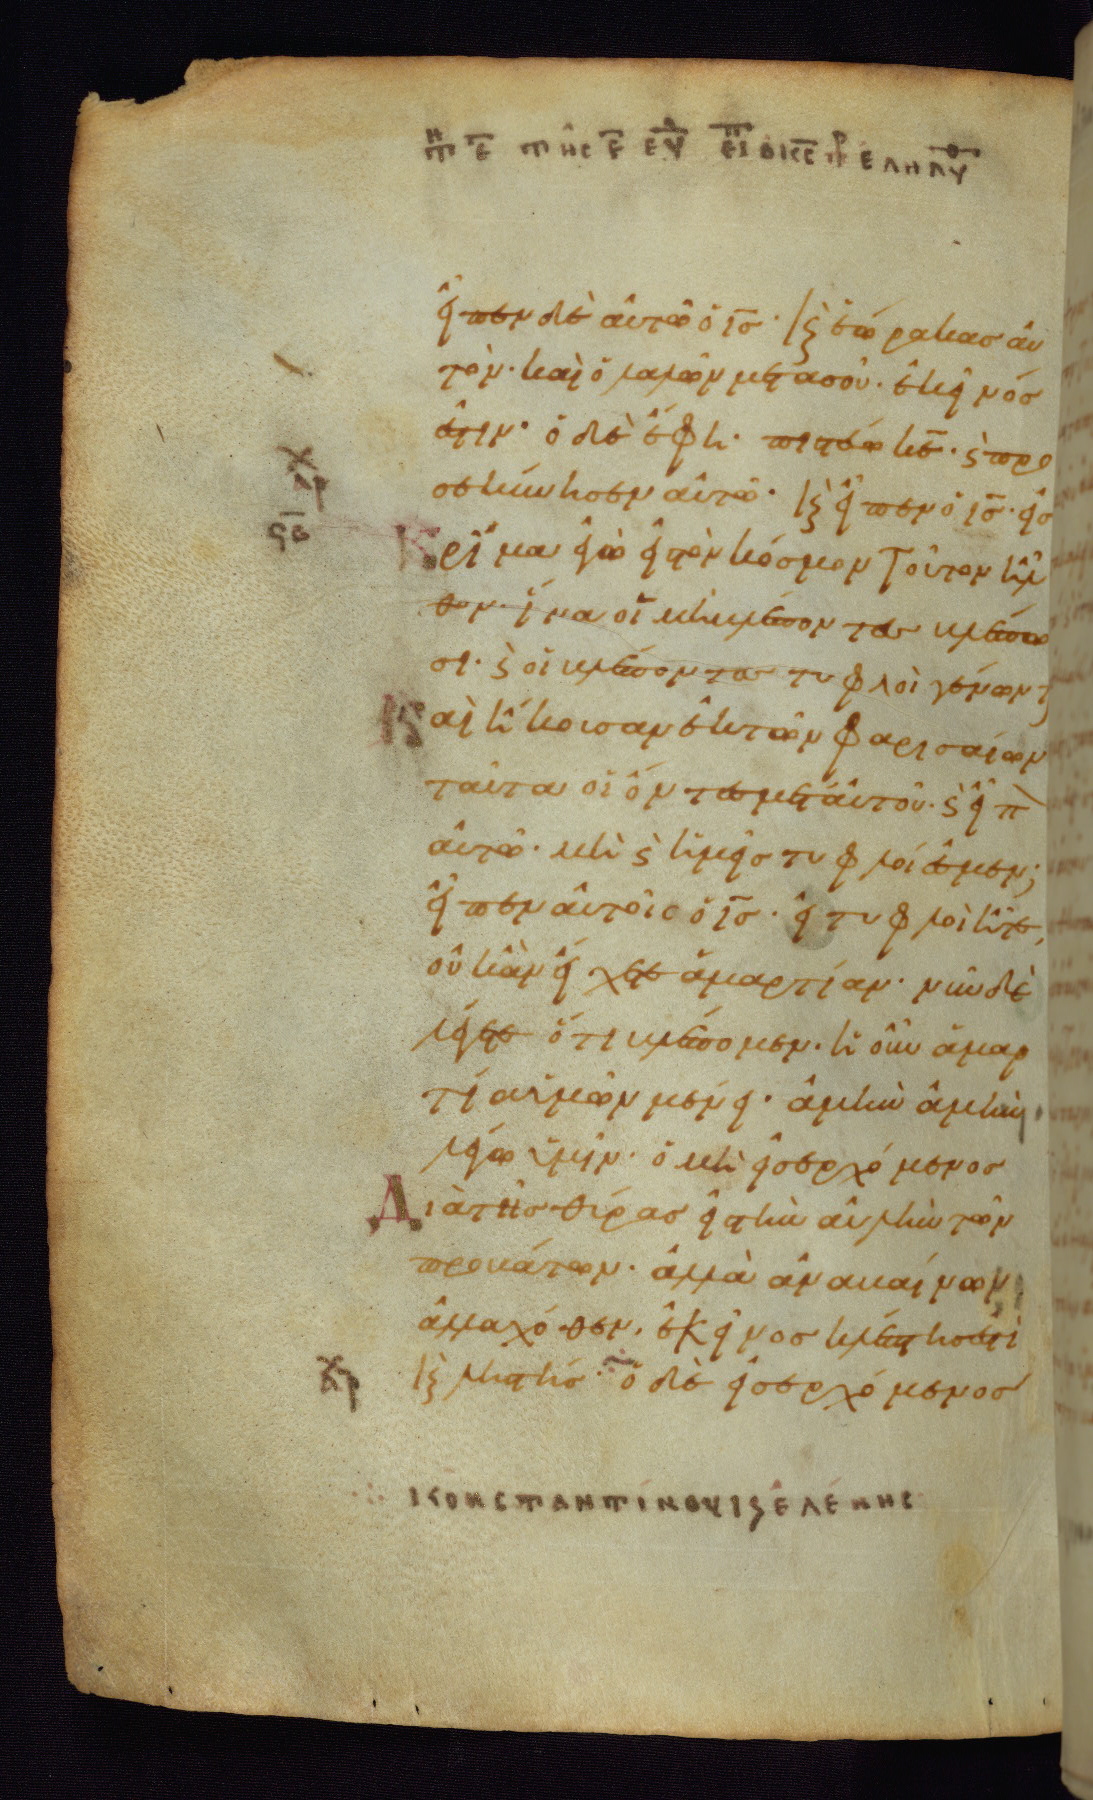 εἶπεν δὲ αὐτῶ ὁ ις̅· κ(αὶ) ἑώρακας αὐ
τὸν· καὶ ὁ λαλῶν μετὰ σοῦ· ἐκεῖνός
ἐστιν· ὁ δὲ ἔφη· πιστεύω κε̅· κ(αὶ) προ
σεκύνησεν αὐτῶ· κ(αὶ) εἶπεν ὁ ις̅· εἰς
Κρίμα ἐγὼ εἰς τὸν κόσμον τοῦτον ἦλ
θον· ἵνα οἱ μὴ βλέποντες βλέπω
σι· κ(αὶ) οἱ βλέποντες τυφλοὶ γένωντ(αι)
Καὶ ἤκουσαν ἐκ τῶν φαρισαίων
ταῦτα οἱ ὄντες μετ αὐτοῦ· κ(αὶ) εἶπ(ον)
αὐτῶ· μὴ κ(αὶ) ἡμεῖς τυφλοί ἐσμεν;
εἶπεν αὐτοῖς ὁ ις̅· εἰ τυφλοὶ ἦτε,
οὐκ ἂν εἴχετε ἁμαρτίαν· νῦν δὲ
λέγετε ὅτι βλέπομεν· ἡ οὖν ἁμαρ
τία ὑμῶν μένει· ἀμὴν ἀμὴν
λέγω ὑμῖν· ὁ μὴ εἰσερχόμενος
Διὰ τῆς θύρας εἰς τὴν αὐλὴν τῶν
προβάτων· ἀλλὰ ἀναβαίνων
ἀλλαχόθεν, ἐκεῖνος κλέπτης ἐστὶ
κ(αὶ) ληστής· ὁ δὲ εἰσερχόμενος
ΚΟΝΣΤΑΝΤΙΝΟΥ Κ(ΑΙ) ΕΛΕΝΗΣ